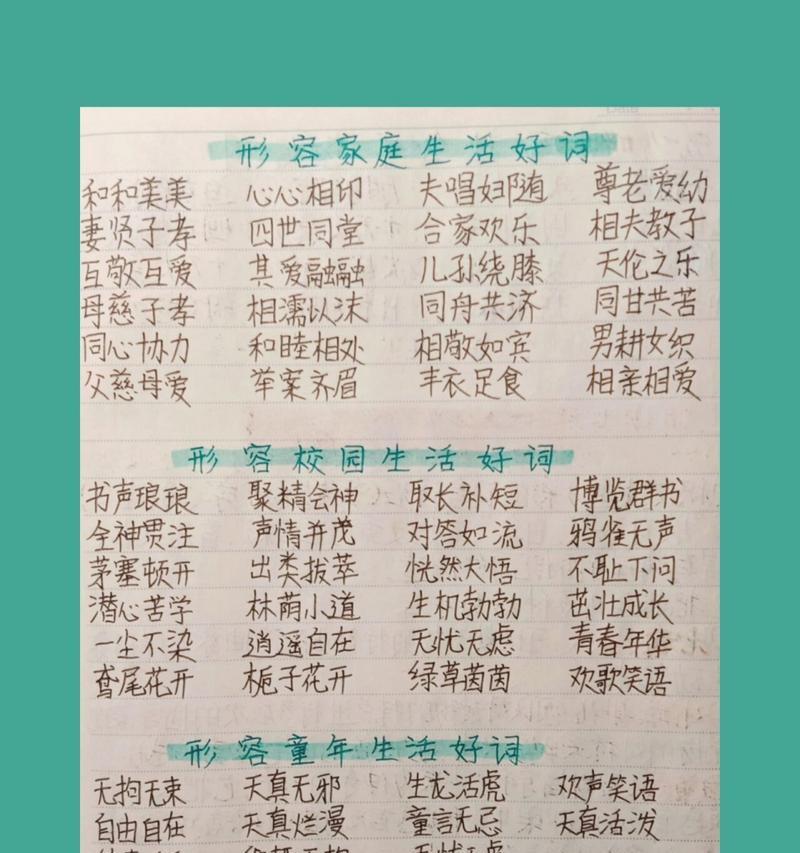 形容家庭生活好词
和和美美 心心相印 夫唱妇随 尊老爱幼
妻贤子孝 四世同堂 合家欢乐 相夫教子
互敬互爱 其爱融融 儿孙绕膝 天伦之乐
母慈子孝 相濡以沫 同舟共济 同甘共苦
同心协力 和睦相处 相敬如宾 男耕女织
父慈母爱 举案齐眉 丰衣足食 相亲相爱
形容校园生活好词
书声琅琅 聚精会神 取长补短 博览群书
全神贯注 声情并茂 对答如流 鸦雀无声
茅塞顿开 出类拔萃 恍然大悟 不耻下问
潜心苦学 林荫小道 生机勃勃 茁壮成长
一尘不染 逍遥自在 无忧无虑 青春年华
鸢尾花开 栀子花开 绿草茵茵 欢歌笑语
形容童年生活好词
无拘无束 天真无邪 生龙活虎 欢声笑语
自由自在 天真烂漫 童言无忌 天真活泼